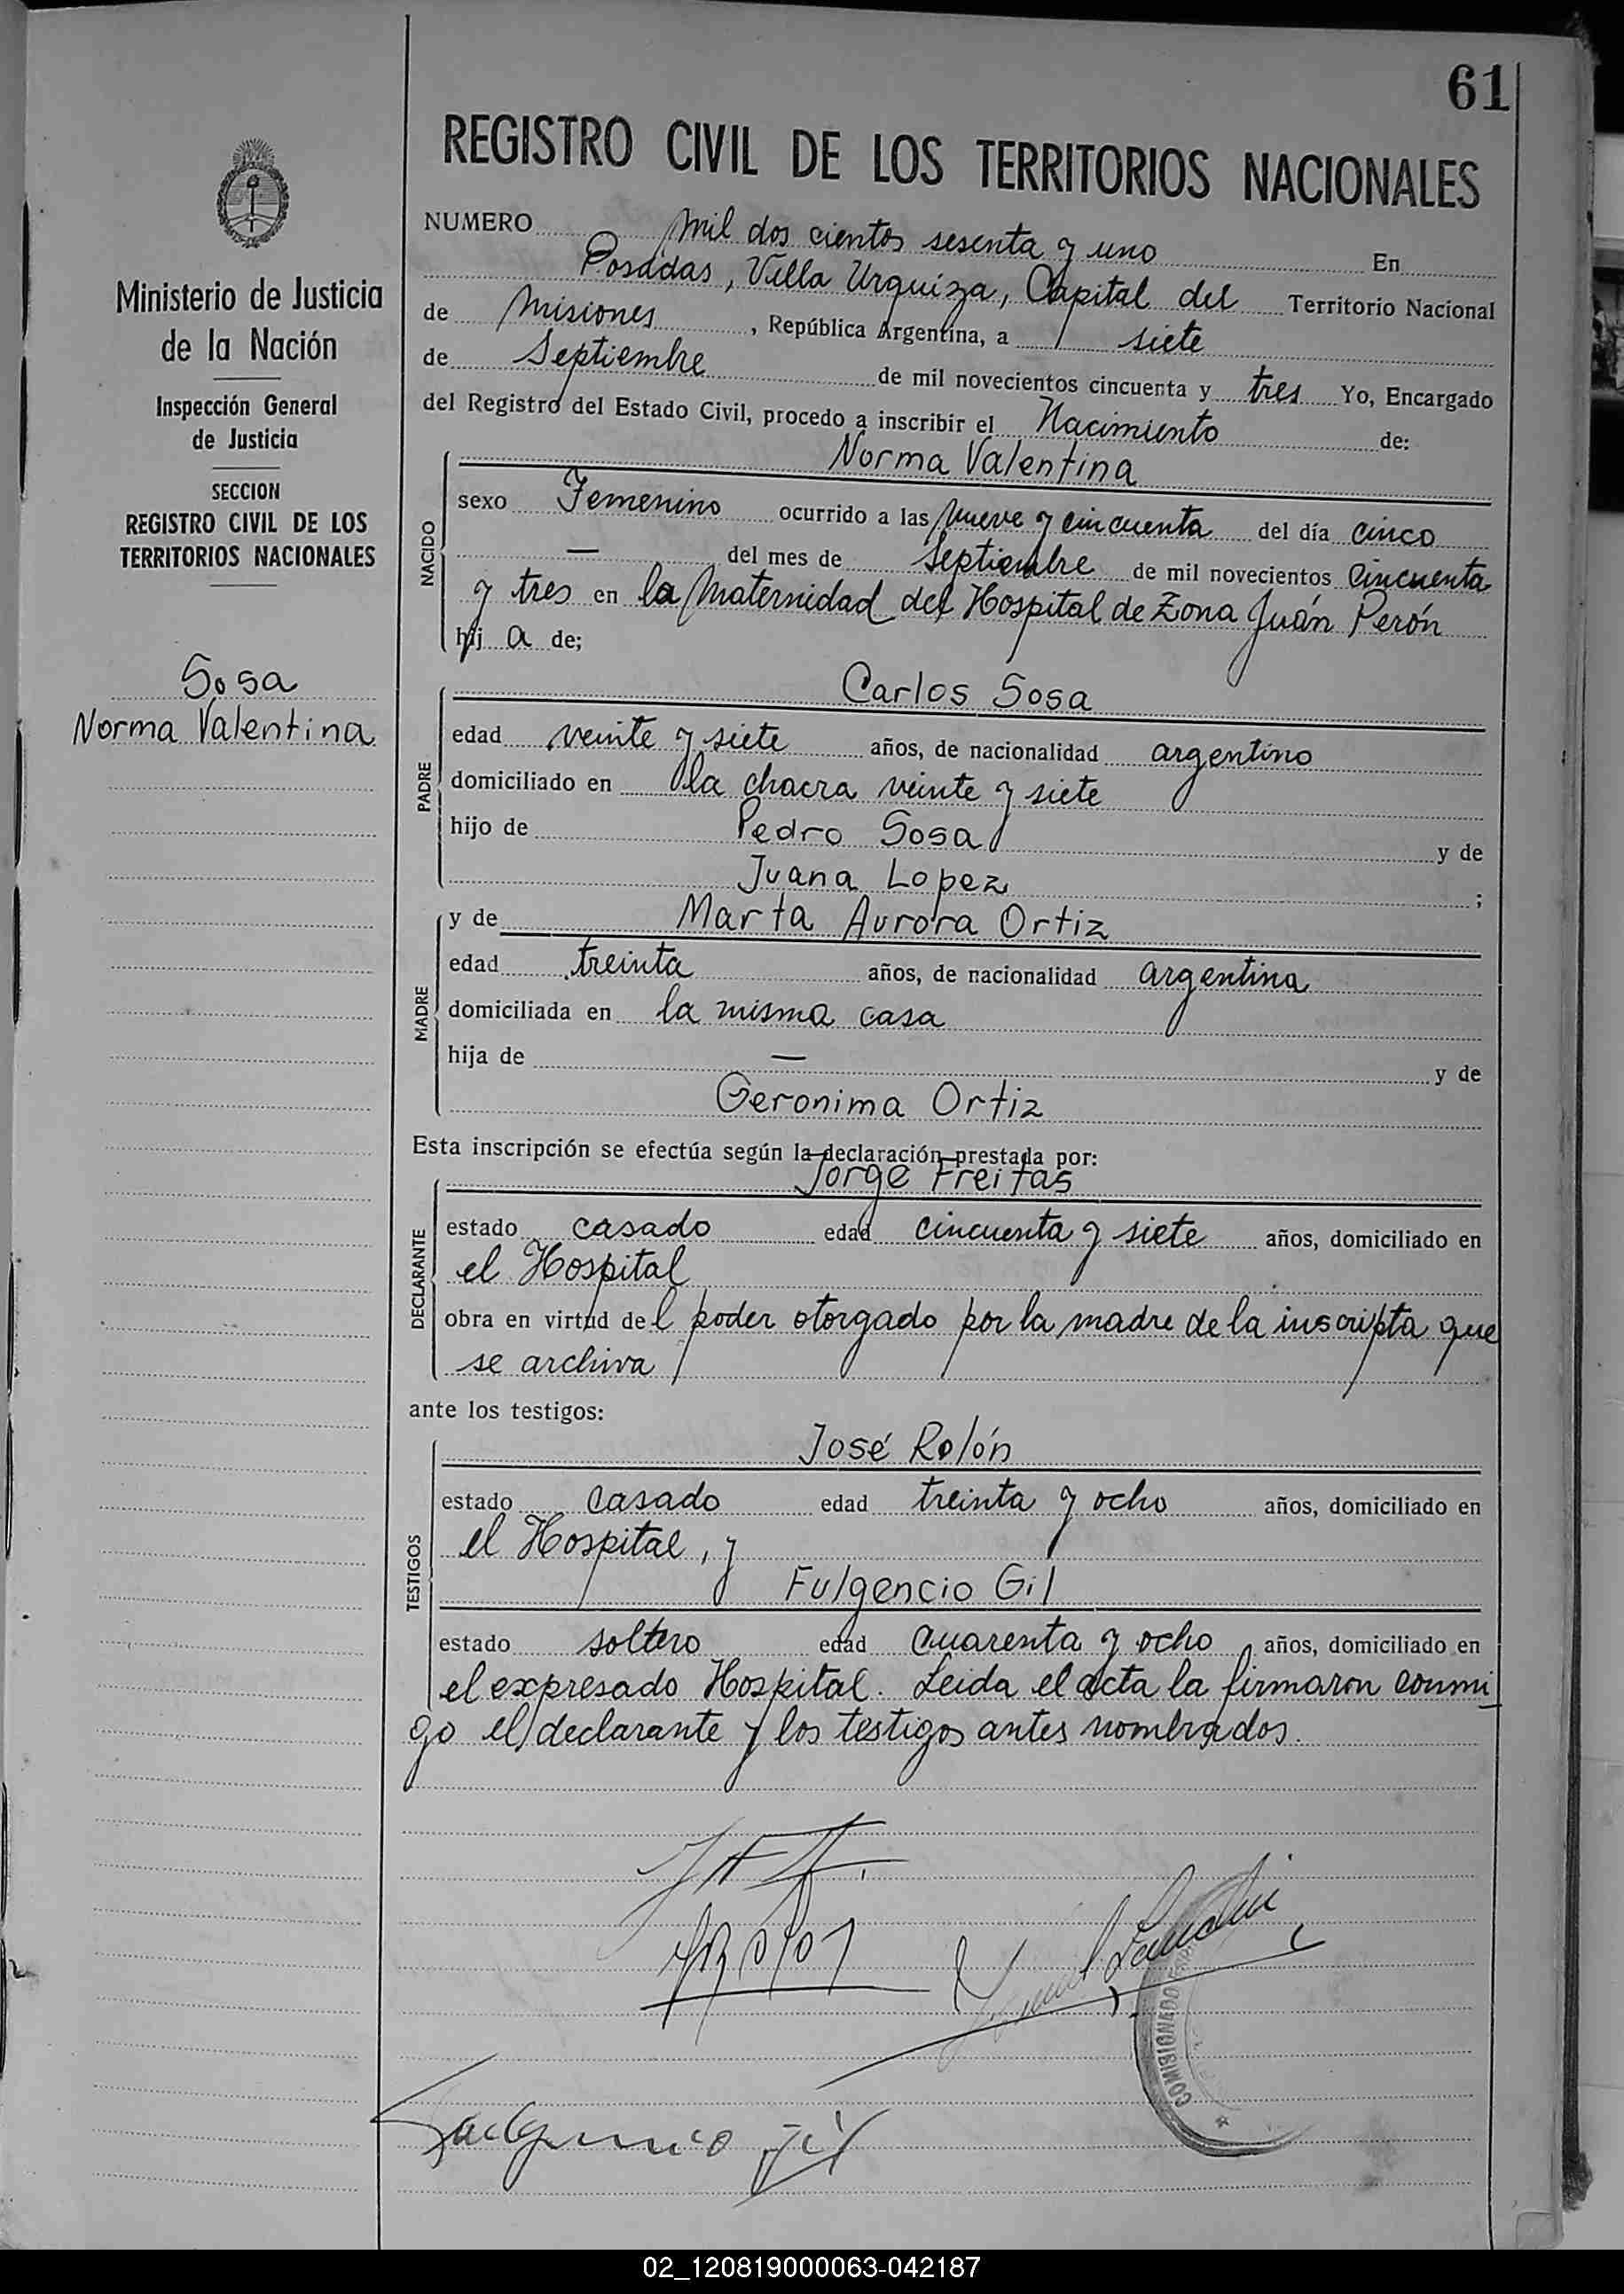 61
REGISTRO CIVIL DE LOS TERRITORIOS NACIONALES
Ministerio de Justicia
de la Nación
Inspección General
de Justicia
SECCION
REGISTRO CIVIL DE LOS
TERRITORIOS NACIONALES
Sosa
Norma Valentina
NUMERO mil dos cientos sesenta y uno En
Posadas, Villa Urquiza, Capital del Territorio Nacional
de Misiones, República Argentina, a siete
de Septiembre de mil novecientos cincuenta y tres Yo, Encargado
del Registro del Estado Civil, procedo a inscribir el Nacimiento de:
Norma Valentina
NACIDO
sexo Femenino ocurrido a las nueve y cincuenta del día cinco
— del mes de Septiembre de mil novecientos cincuenta
y tres en la Maternidad del Hospital de Zona Juan Perón
hij a de;
Carlos Sosa
PADRE
edad veinte y siete años, de nacionalidad argentino
domiciliado en la chacra veinte y siete
hijo de Pedro Sosa y de
Juana Lopez ;
MADRE
y de Marta Aurora Ortiz
edad treinta años, de nacionalidad argentina
domiciliada en la misma casa
hija de — y de
Geronima Ortiz
Esta inscripción se efectúa según la declaración prestada por:
Jorge Freitas
DECLARANTE
estado casado edad cincuenta y siete años, domiciliado en
el Hospital
obra en virtud del poder otorgado por la madre de la inscripta que
se archiva
ante los testigos:
José Rolón
TESTIGOS
estado casado edad treinta y ocho años, domiciliado en
el Hospital, y
Fulgencio Gil
estado soltero edad cuarenta y ocho años, domiciliado en
el expresado Hospital. Leida el acta la firmaron conmi
go el declarante y los testigos antes nombrados.
COMISIONADO
Fulgencio Gil
02_120819000063-042187